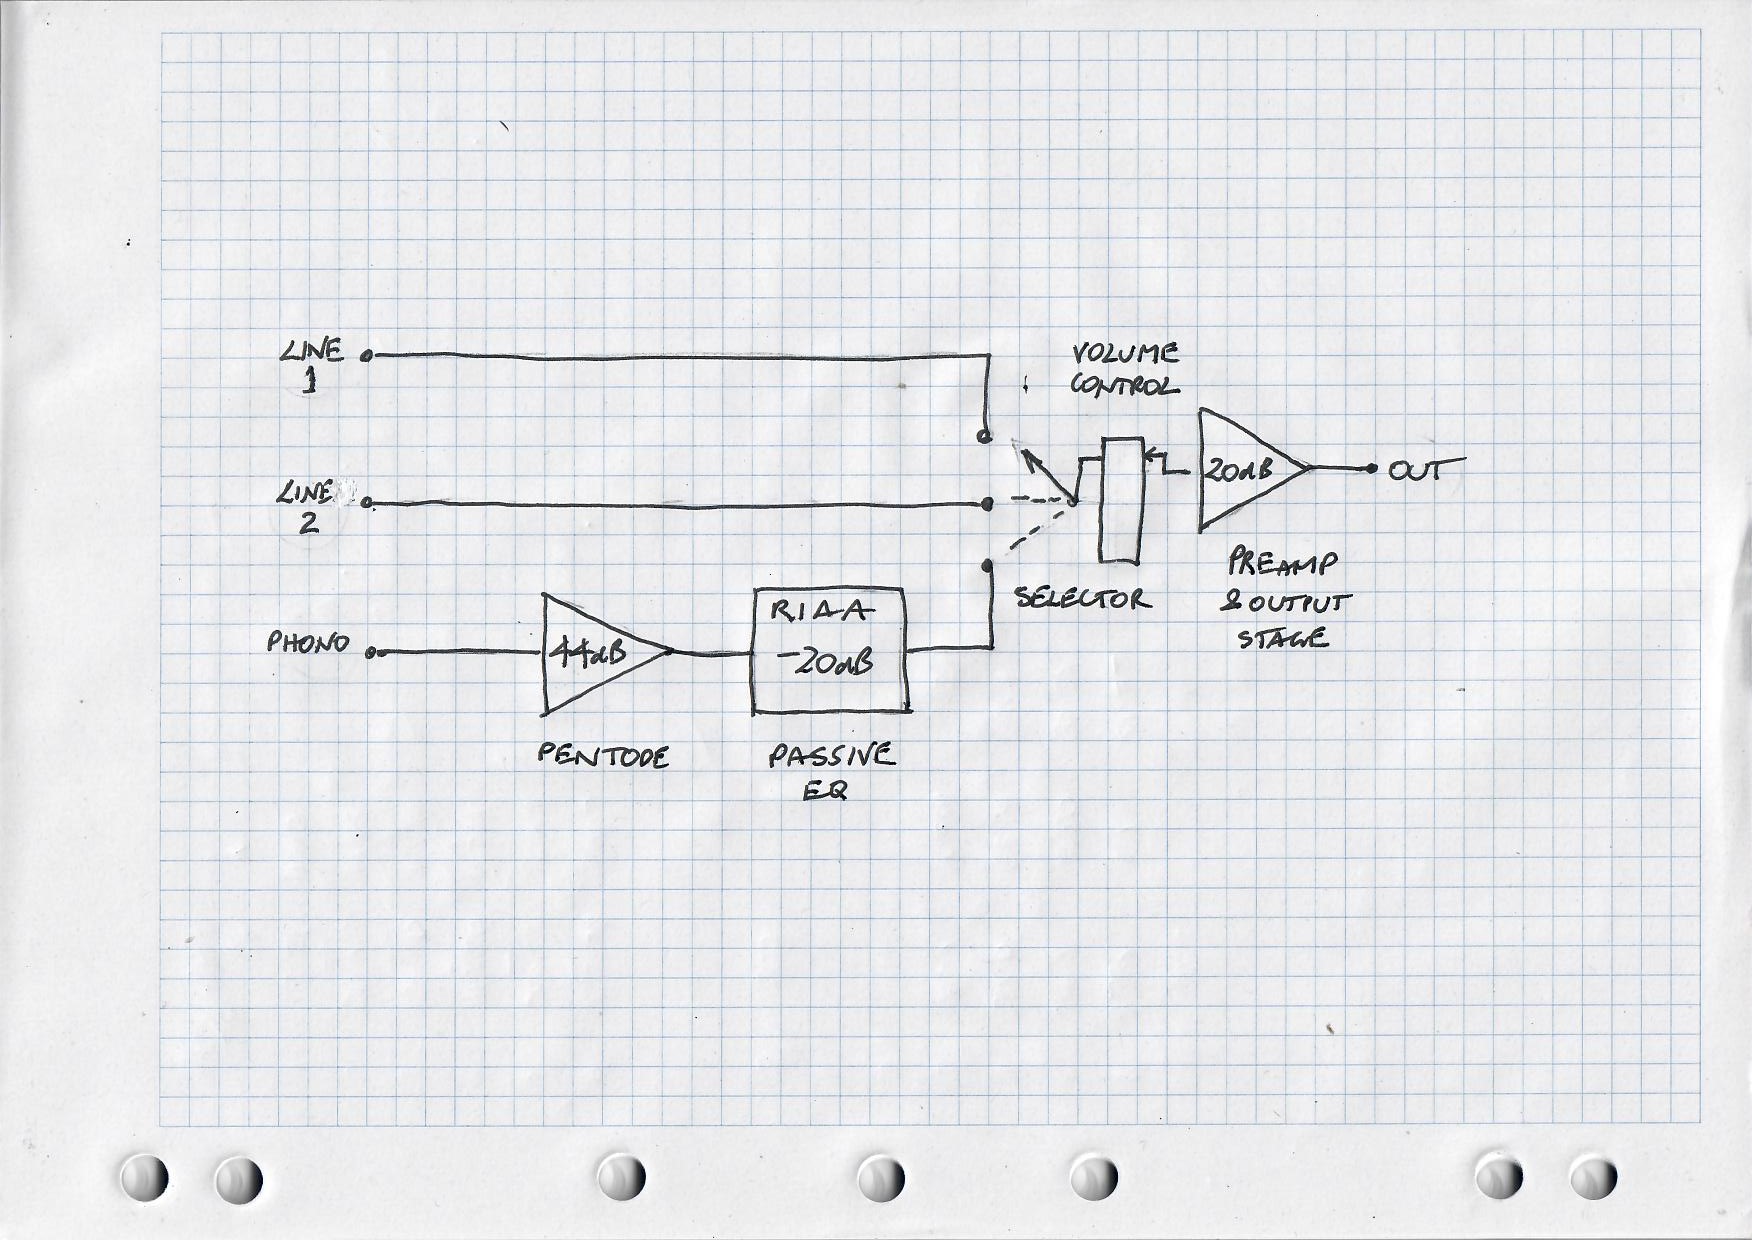 LINE
1
VOLUME
CONTROL
20dB
OUT
LINE
2
PREAMP
& OUTPUT
STAGE
SELECTOR
PHONO
44dB
RIAA
-20dB
PENTODE
PASSIVE
EQ